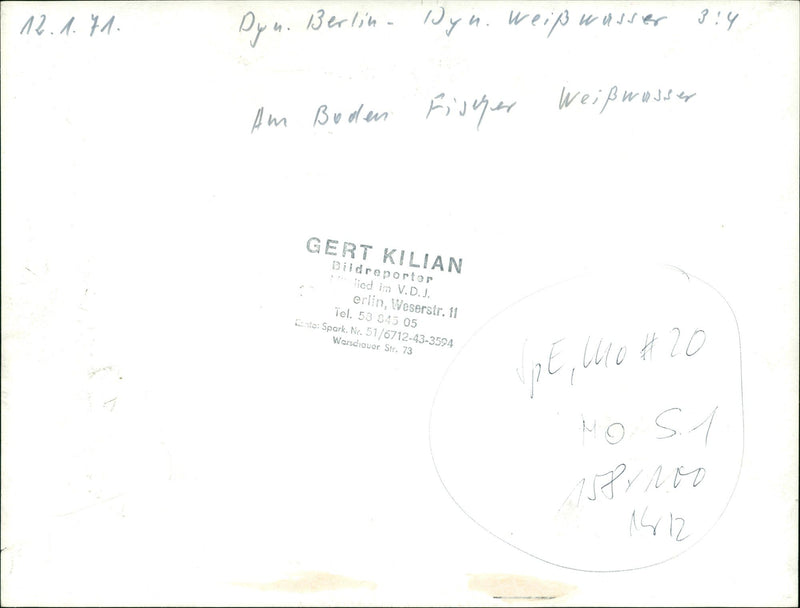 12.1.71. Dyn. Berlin - Dyn. Weißwasser 3:4
Am Boden Fischer Weißwasser
GERT KILIAN
Bildreporter
lied im V.D.J.
erlin, Weserstr. 11
Tel. 58 045 05
Konto: Spark. Nr. 51/6712-43-3594
Warschauer Str. 73
SpE, Mo #20
MO S.1
158 x 100
Nr 12